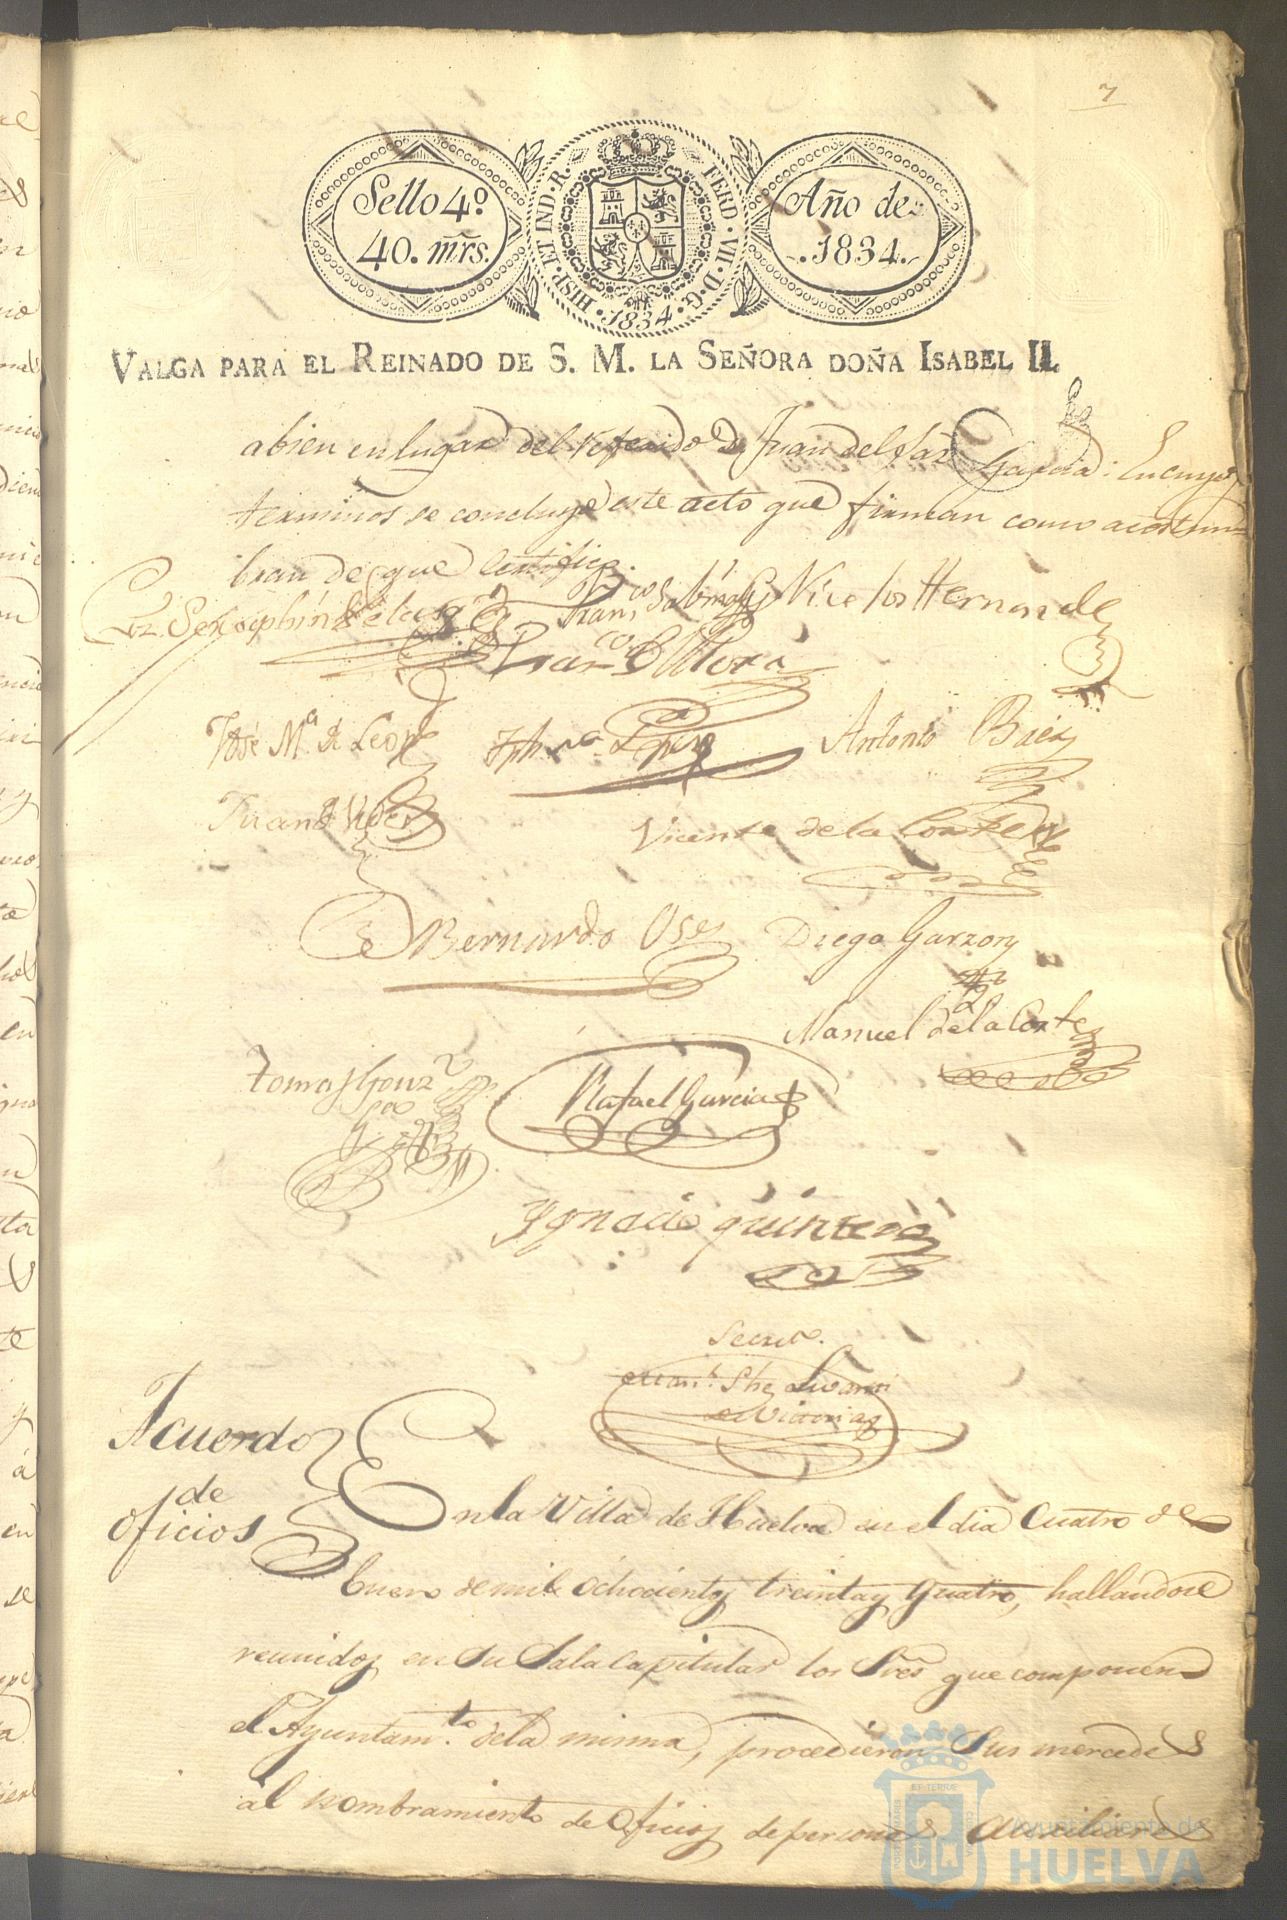 7
Sello 4º
40. mrs.
HISP. ET IND. R. FERD. VII. D. G. 1834.
Año de
1834.
VALGA PARA EL REINADO DE S. M. LA SEÑORA DOÑA ISABEL II.
abien en lugar del referido Dn Juan del Garcia: En cuyos
terminos se concluye este acto que firman como acostum=
bran de que Certifico.
Franco Nicolas Hernande
Franco
José Mª de Leon Lopez Antonio Baez
Vicente de la Corte
Bernardo Oses Diego Garzon
Manuel de la Corte
Tomas Gonz
Rafael Garcia
Ygnacio quintero
Secreto.
de Victoria
Acuerdo
de
oficios
En la Villa de Huelva en el dia Cuatro de
Enero de mil ochocientos treinta y quatro, hallandose
reunidos en su Sala Capitular los Sres que componen
el Ayuntamto de la misma, procedieron Sus mercedes
al nombramiento de oficios de personas auxiliares
Ayuntamiento de
HUELVA